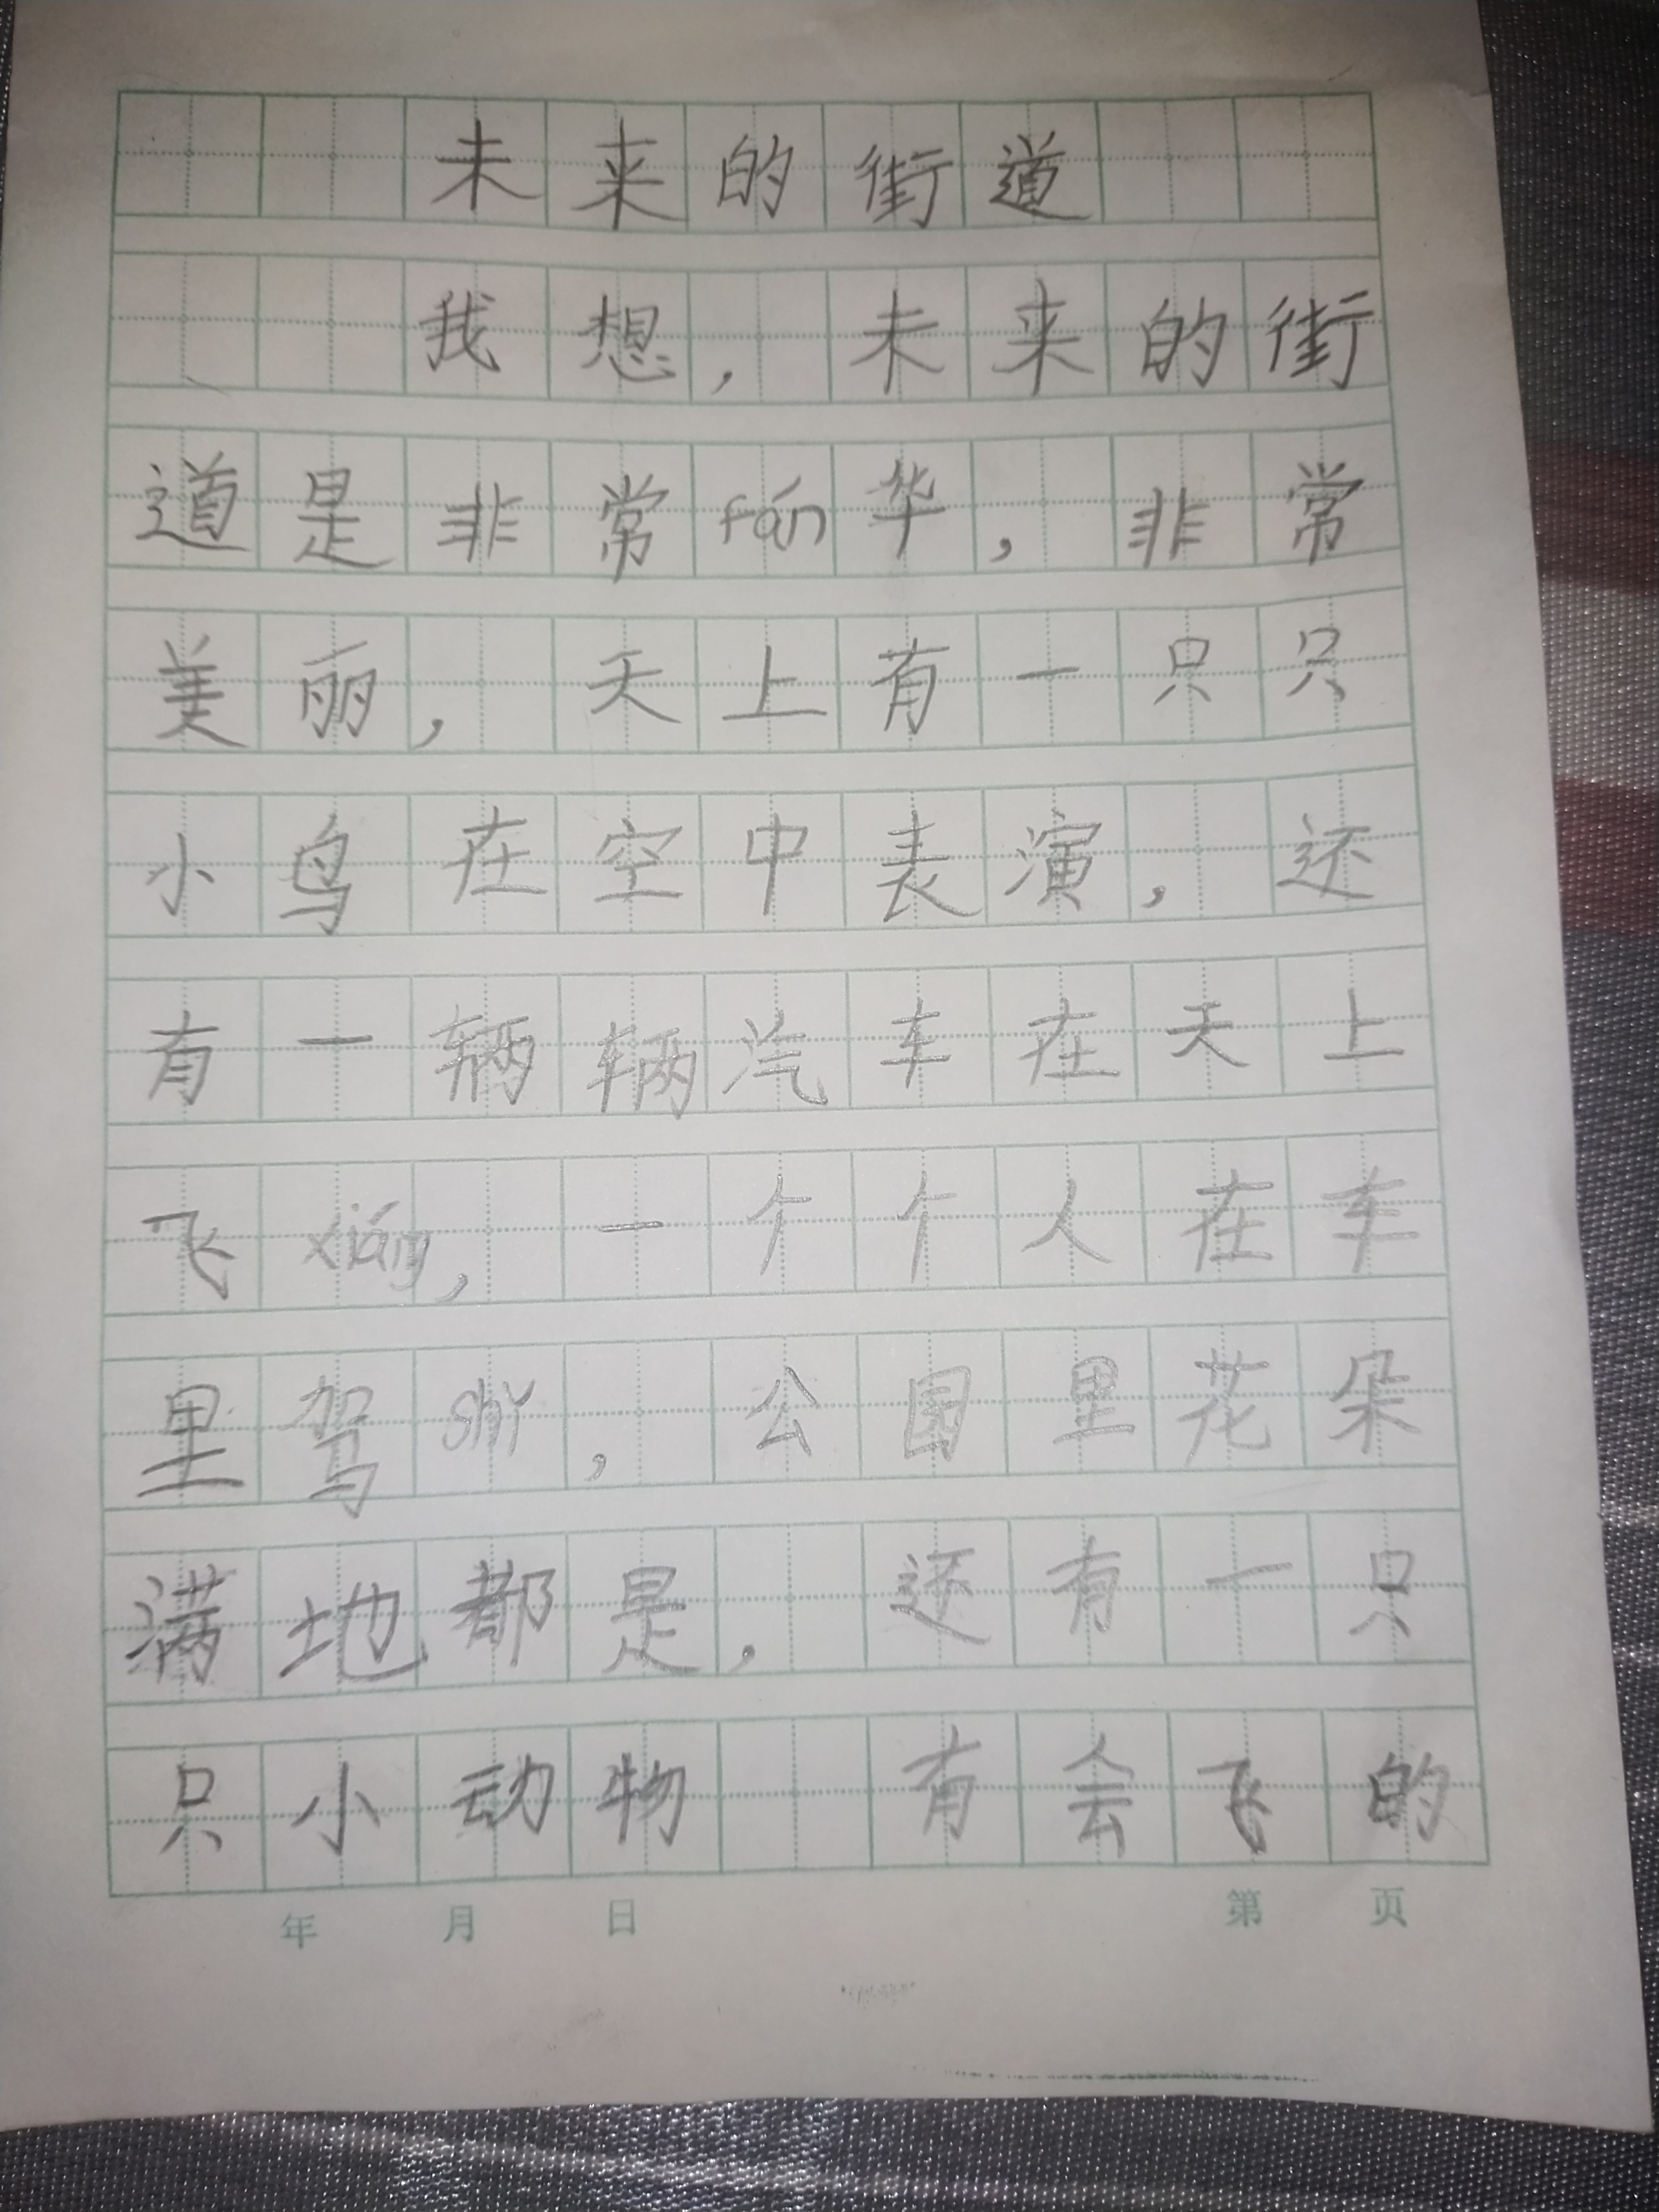 未来的街道
我想，未来的街
道是非常fán华，非常
美丽，天上有一只只
小鸟在空中表演，还
有一辆辆汽车在天上
飞xiáng，一个个人在车
里驾shǐ，公园里花朵
满地都是，还有一只
只小动物 有会飞的
年 月 日 第 页